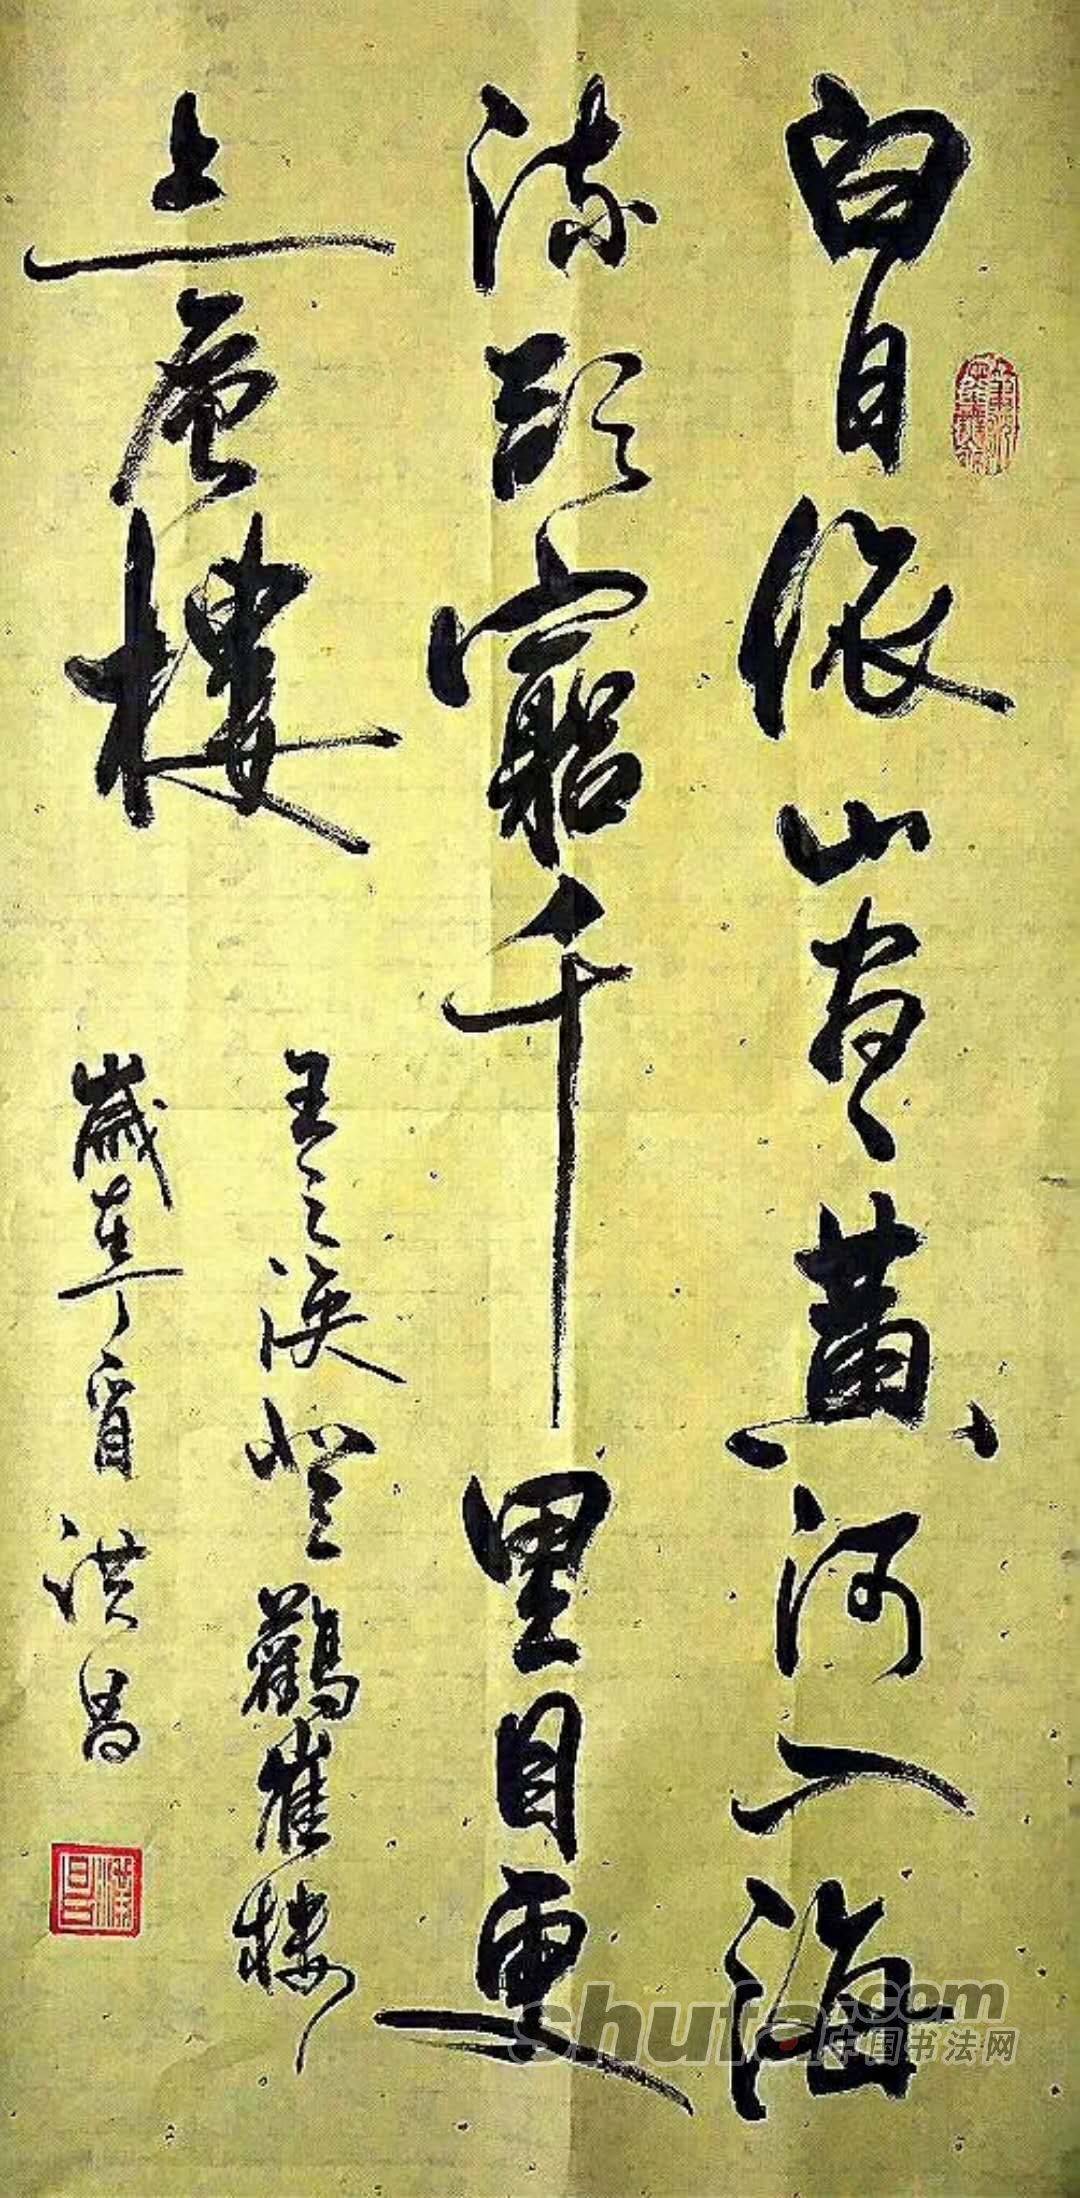 白日依山尽黄河入海
流欲竆千里目更
上一层樓
王之渙登鸛雀樓
歲在丁酉 洪昌
shufa.com
中国书法网